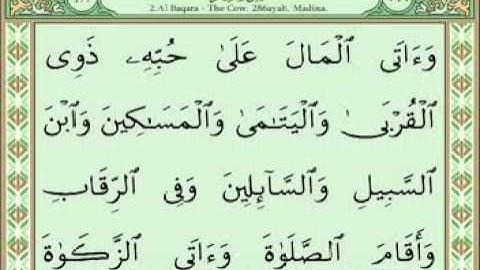 2.Al Baqara - The Cow. 286ayah. Madina.
وَءَاتَى ٱلْمَالَ عَلَىٰ حُبِّهِۦ ذَوِى
ٱلْقُرْبَىٰ وَٱلْيَتَـٰمَىٰ وَٱلْمَسَـٰكِينَ وَٱبْنَ
ٱلسَّبِيلِ وَٱلسَّآئِلِينَ وَفِى ٱلرِّقَابِ
وَأَقَامَ ٱلصَّلَوٰةَ وَءَاتَى ٱلزَّكَوٰةَ